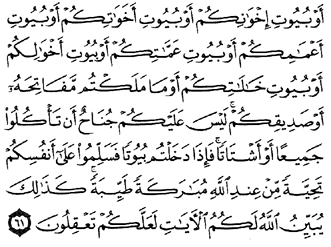 أَوْ بُيُوتِ إِخْوَٰنِكُمْ أَوْ بُيُوتِ أَخَوَٰتِكُمْ أَوْ بُيُوتِ
أَعْمَـٰمِكُمْ أَوْ بُيُوتِ عَمَّـٰتِكُمْ أَوْ بُيُوتِ أَخْوَٰلِكُمْ
أَوْ بُيُوتِ خَـٰلَـٰتِكُمْ أَوْ مَا مَلَكْتُم مَّفَاتِحَهُۥٓ
أَوْ صَدِيقِكُمْ ۚ لَيْسَ عَلَيْكُمْ جُنَاحٌ أَن تَأْكُلُوا۟
جَمِيعًا أَوْ أَشْتَاتًا ۚ فَإِذَا دَخَلْتُم بُيُوتًا فَسَلِّمُوا۟ عَلَىٰٓ أَنفُسِكُمْ
تَحِيَّةً مِّنْ عِندِ ٱللَّهِ مُبَـٰرَكَةً طَيِّبَةً ۚ كَذَٰلِكَ
يُبَيِّنُ ٱللَّهُ لَكُمُ ٱلْـَٔايَـٰتِ لَعَلَّكُمْ تَعْقِلُونَ ٦١